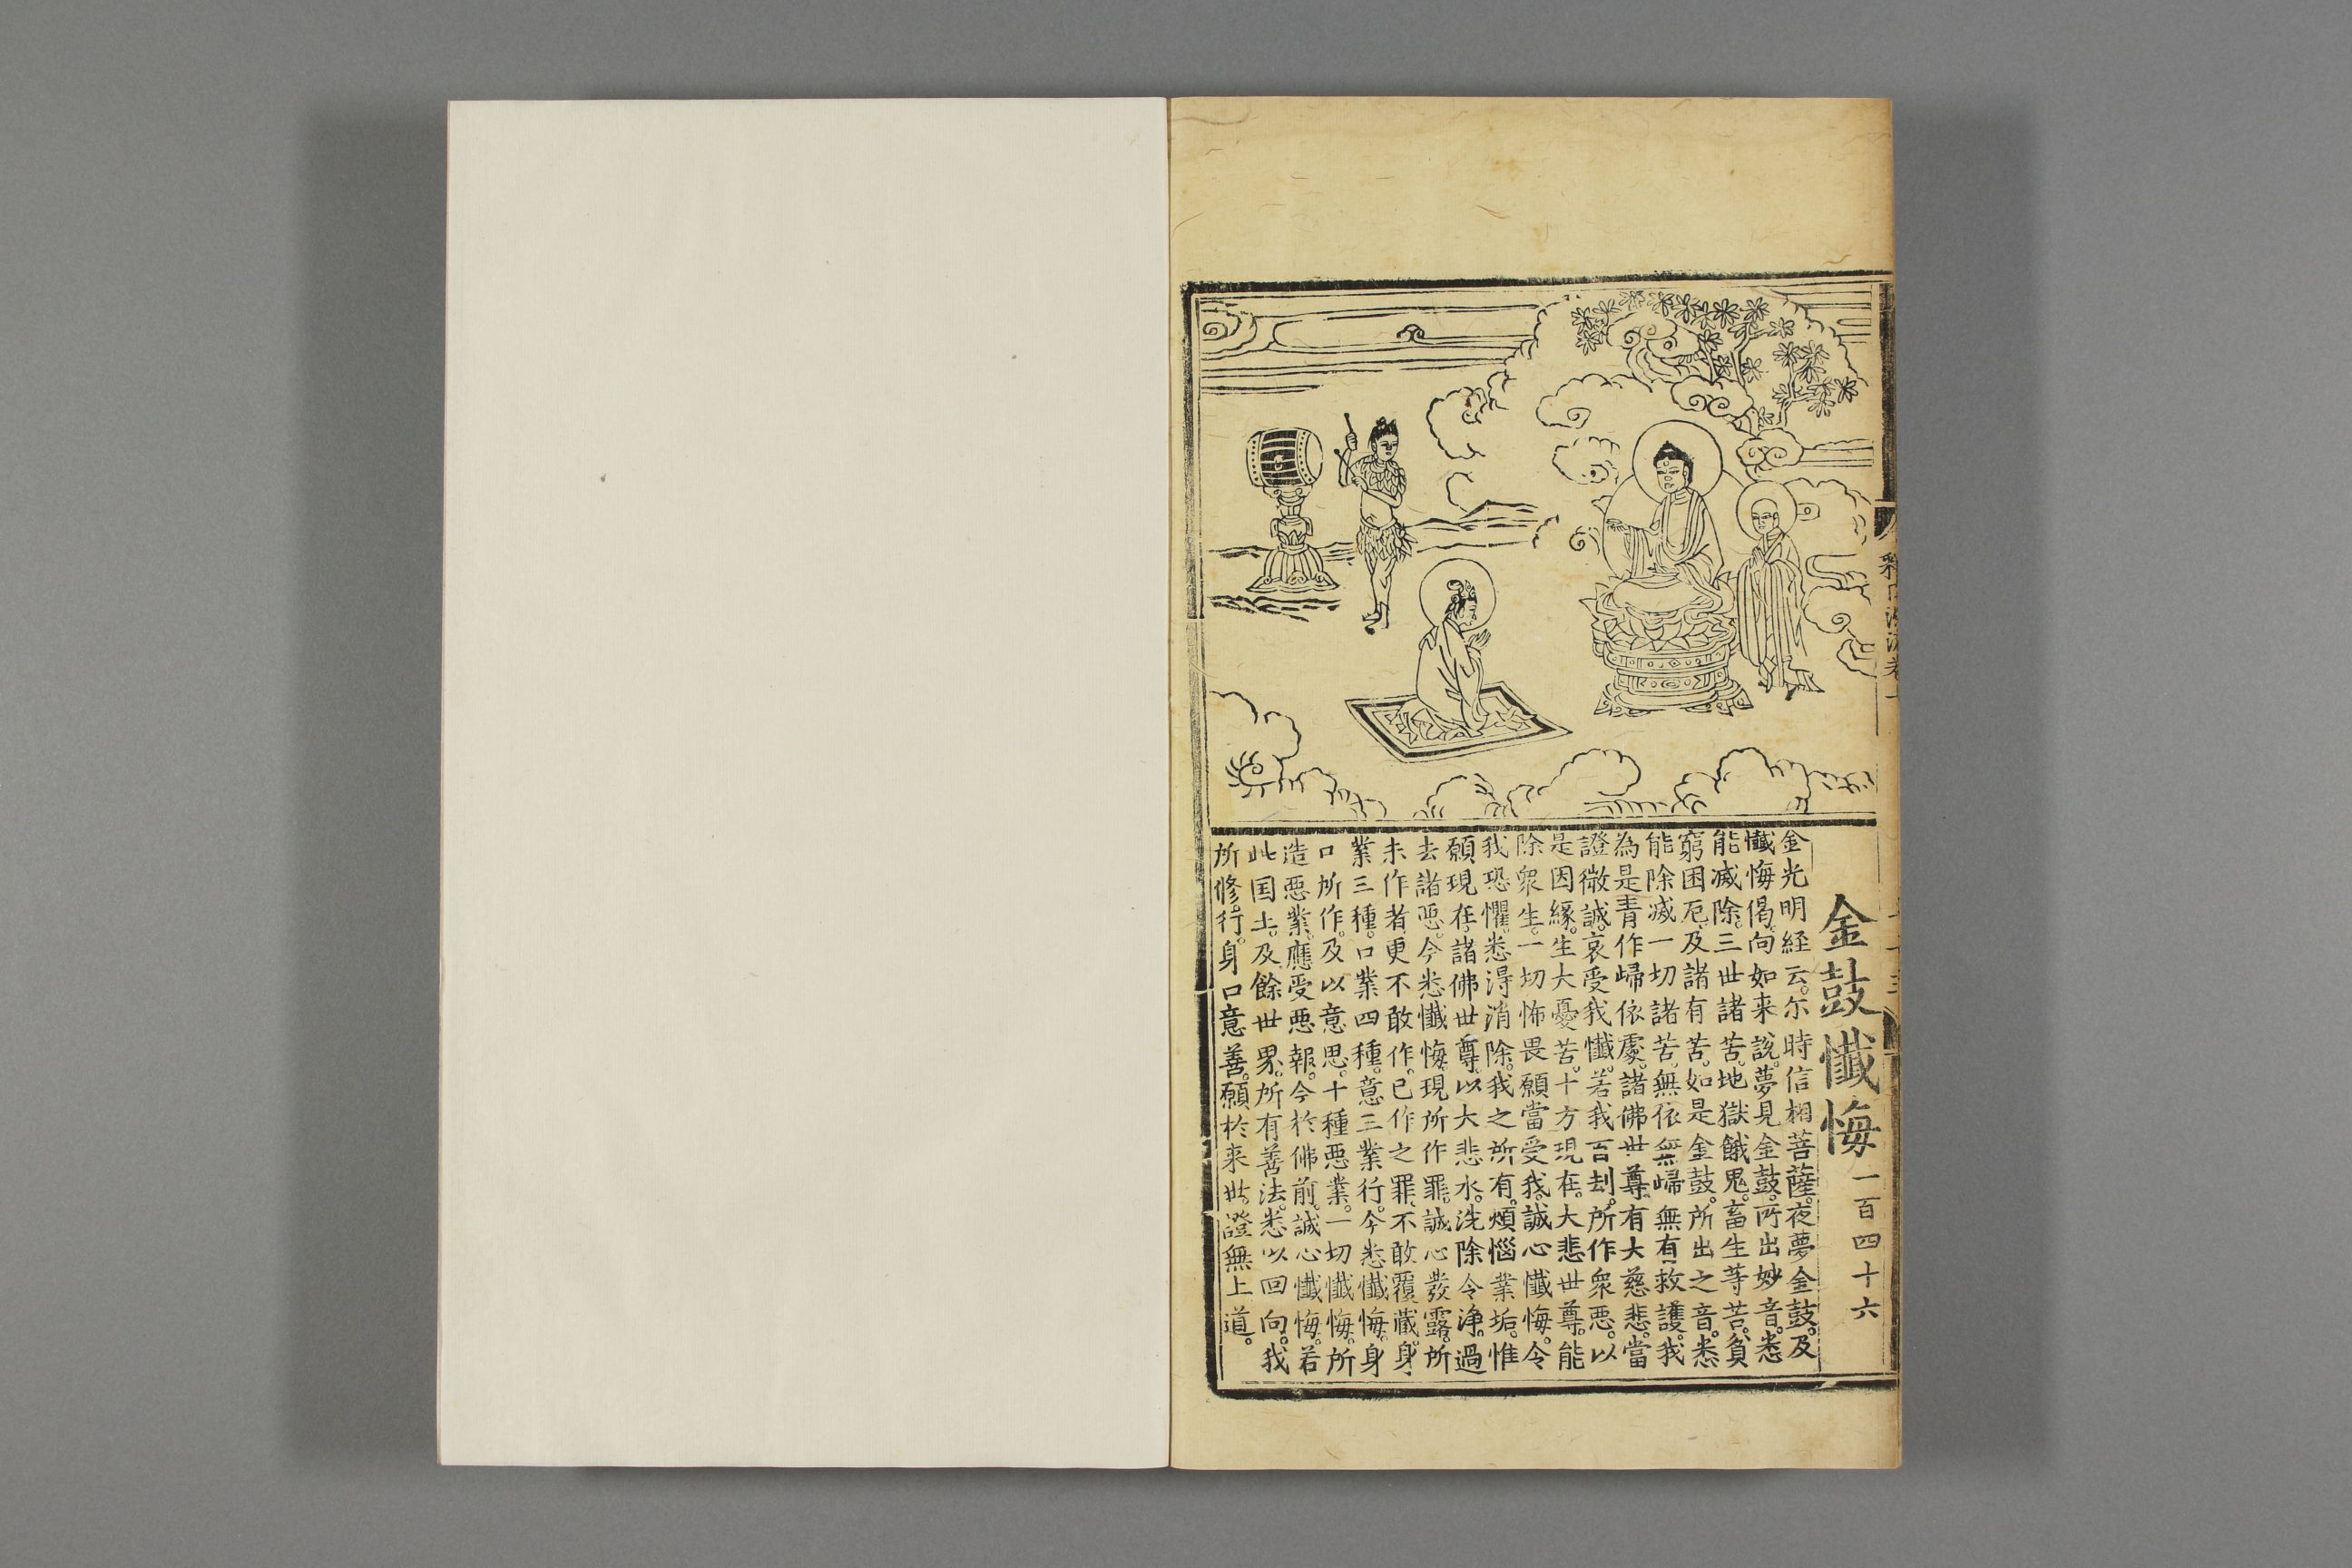 金鼓懺悔 一百四十六
金光明経云。尓時信相菩薩。夜夢金鼓。及
懺悔偈。向如来說。夢見金鼓。所出妙音。悉
能滅除。三世諸苦。地獄餓鬼。畜生等苦。貧
窮困厄。及諸有苦。如是金鼓。所出之音。悉
能除滅一切諸苦。無依無歸無有救護。我
為是青作歸依處。諸佛世尊。有大慈悲。當
證微誠。哀受我懺。若我百刧。所作衆惡。以
是因緣。生大憂苦。十方現在。大悲世尊。能
除衆生。一切怖畏願當受我。誠心懺悔。令
我恐懼。悉淂消除。我之所有。煩惱業垢。惟
願現在諸佛世尊。以大悲水。洗除令浄。過
去諸惡。今悉懺悔。現所作罪。誠心發露。所
未作者更不敢作。已作之罪。不敢覆蔵。身
業三種。口業四種。意三業行。今悉懺悔。身
口所作。及以意思。十種惡業。一切懺悔。所
造惡業。應受惡報。今於佛前。誠心懺悔。若
此国土。及餘世界。所有善法。悉以回向。我
所修行。身口意善。願於来世。證無上道。